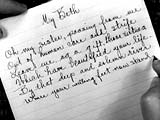 My Beth
Oh my sister, passing from me
Out of human care and strife
Leave me as a gift those virtues
Which have beautified your life.
By that deep and solemn river
Where your willing feet now stand